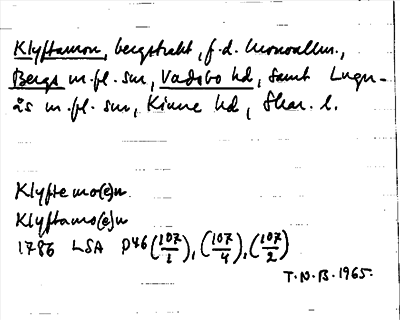 Klyftamon, bergstrakt, f.d. kronoallm.,
Bergs m.fl. snr, Vadsbo hd, samt Lugn-
ås m.fl. snr, Kinne hd, Skar. l.
Klyftemo(e)n
Klyftamo(e)n
1786 LSA P46 (107/1), (107/4), (107/2)
T.N.B. 1965.